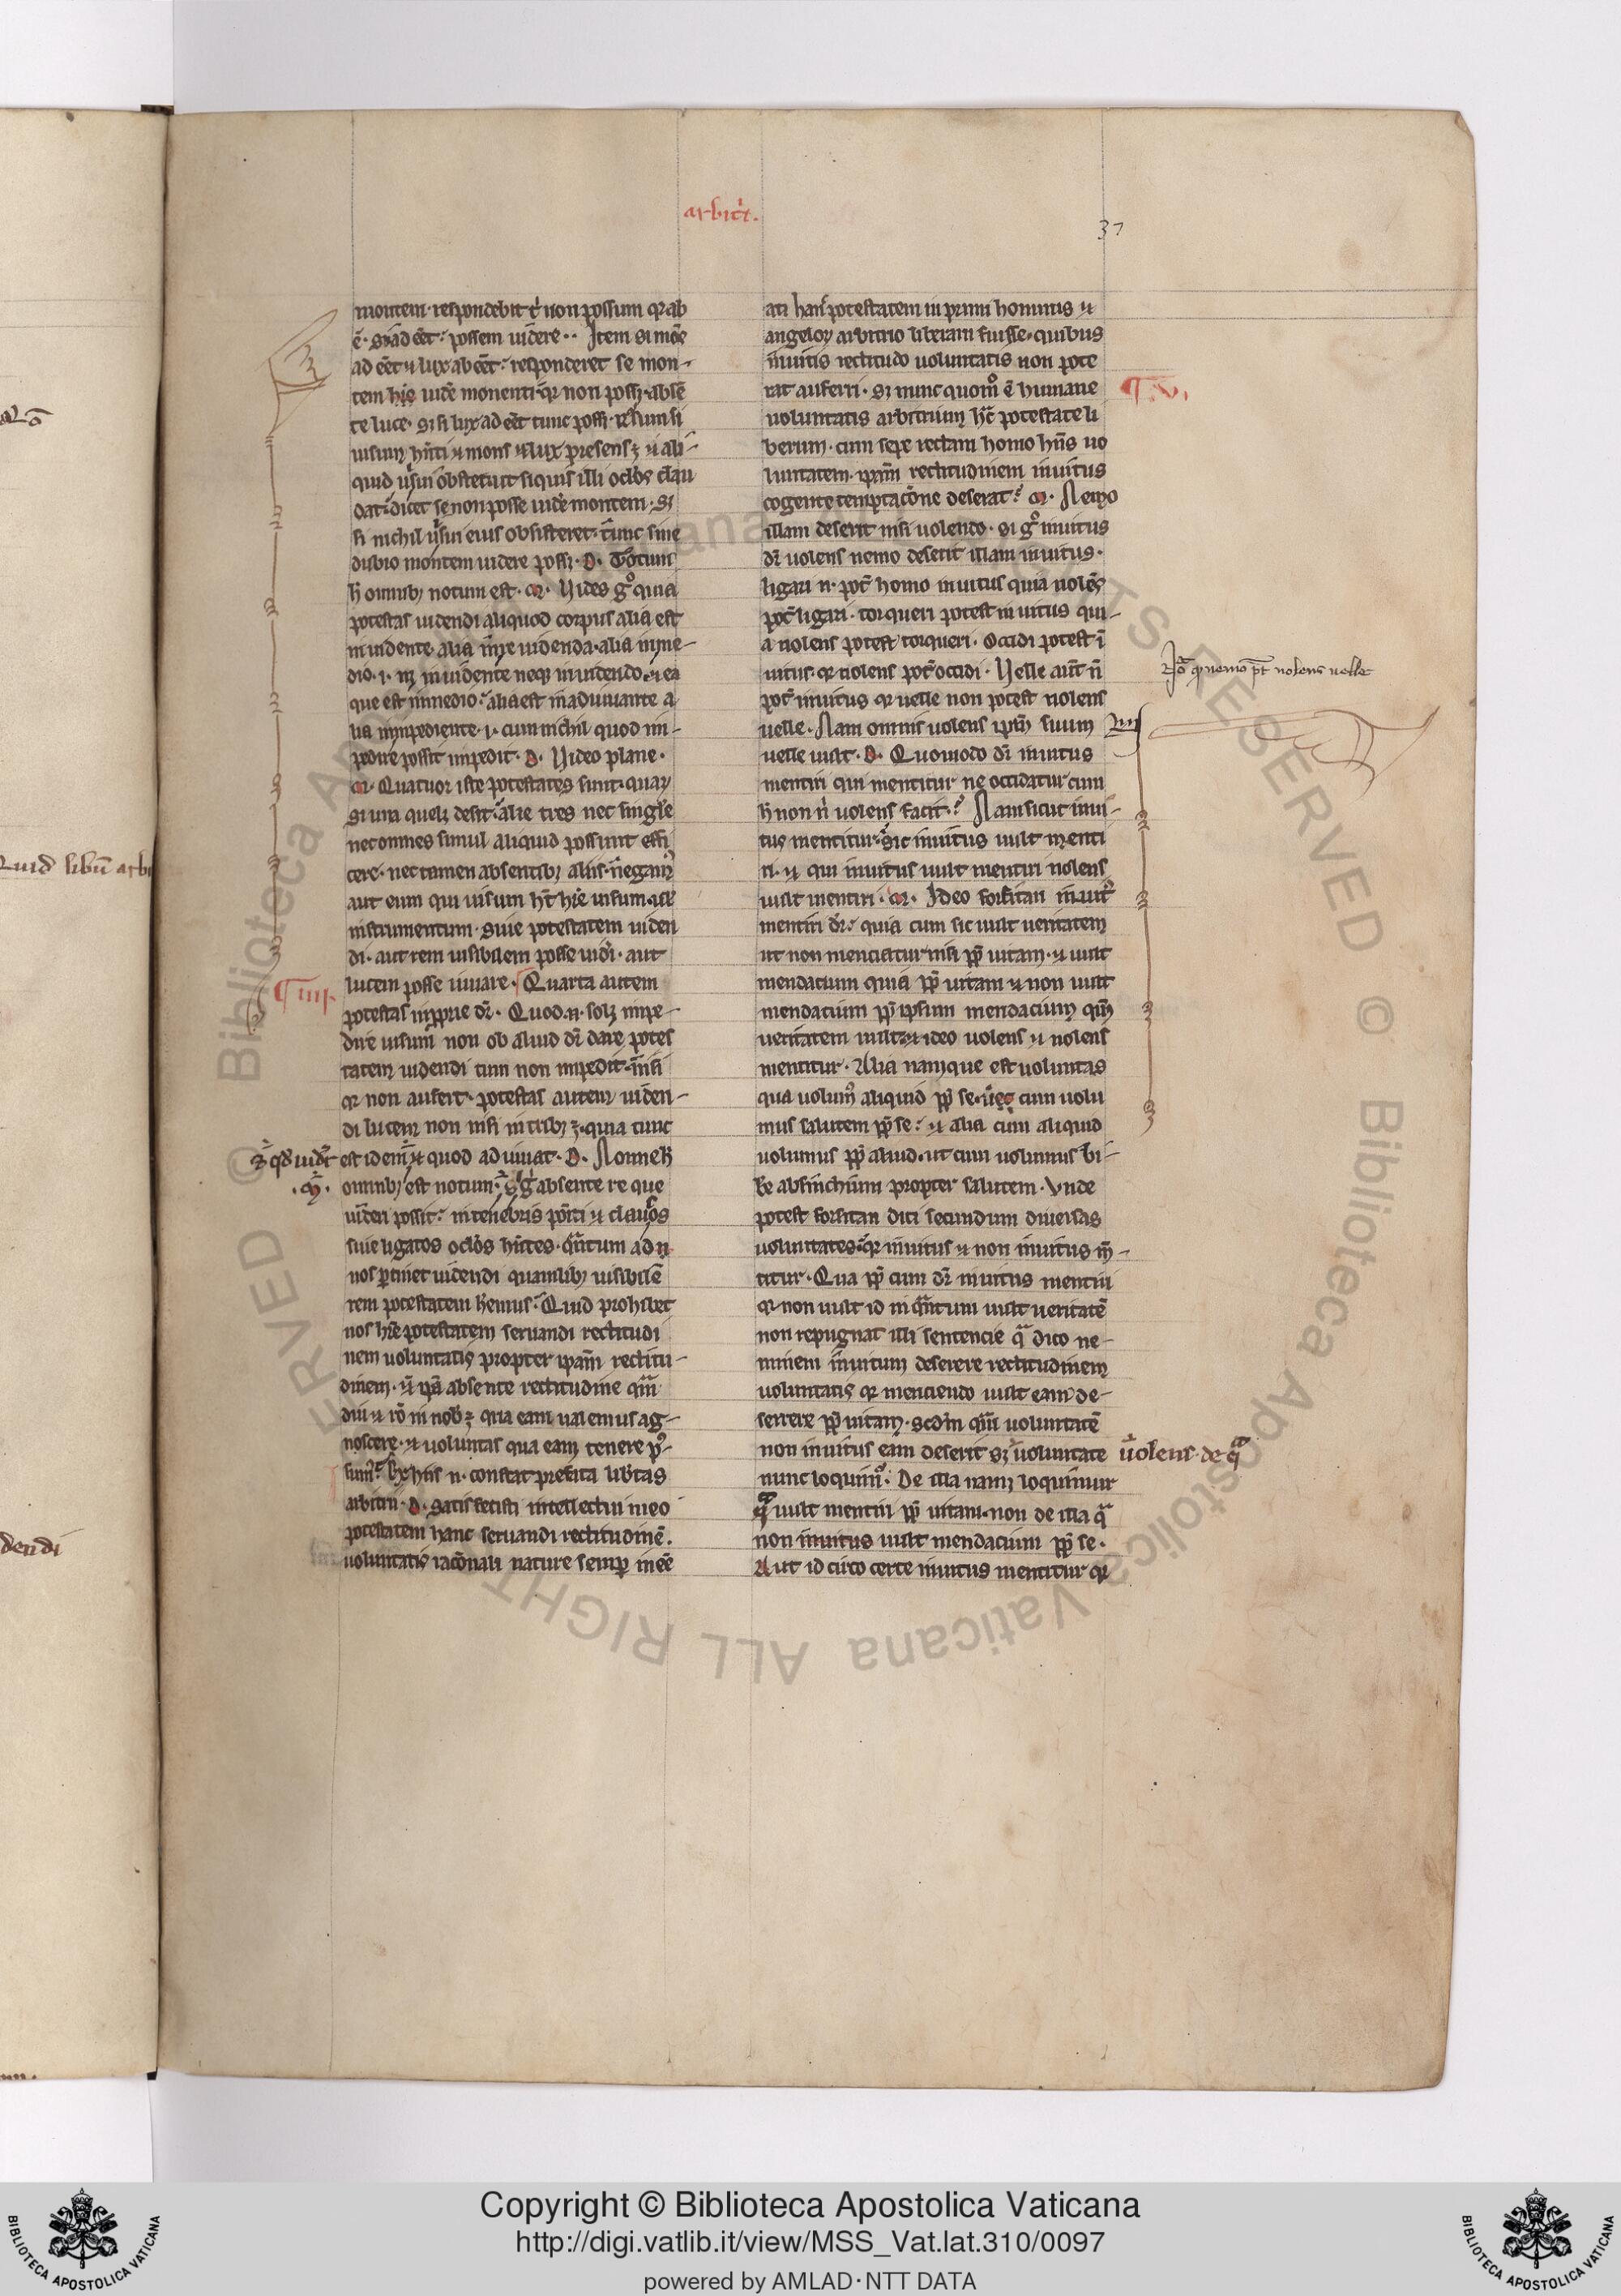 arbit̾.
37
montem · respondebit t̾ non possum qꝛ ab
ē · si ad eēt · possem uidere · · Item si mōs
ad eēt ⁊ lux ab eēt · responderet se mon-
tem uidē monenti qꝛ non possꝫ · absē
te luce · sꝫ si lux ad eēt tunc possꝫ
uisum hn̄ti ⁊ mons ⁊ lux presens ꝫ ⁊ ali-
quid uisui obstet ut si quis illi oclōs clau
dat · dicet se non posse uidē montem · sꝫ
si nichil uisui eius obsisteret · tunc sine
dubio montem uidere possꝫ · D · Totum
h̄ omnibꝫ notum est · M · Uides gͦ quia
potestas uidendi aliquod corpus alia est
in uidente alia in re uidenda · alia in me-
dio · i · nꝫ in uidente neqꝫ in uidendo · ⁊ ea
que est in medio · alia est in adiuuante a
lia in īpediente · i · cum nichil quod im-
pedire possit impedit · D · Uideo plane ·
M · Quatuor iste potestates sunt · quaꝝ
si una quelꝫ desit · alie tres nec singl̄e
nec omnes simul aliquid possunt effi
cere · nec tamen absentibꝫ aliis · negamꝰ
aut eum qui uisum hꝫ hr̄e uisum
instrumentum · siue potestatem uiden
di · aut rem uisibilem posse uidi · aut
lucem posse iuuare · Quarta autem
¶ iiij ·
potestas īpprie dr̄ · Quod · n · solꝫ impe-
dire uisum non ob aliud dr̄ dare potes
tatem uidendi cum non impedit · nisi
qꝛ non aufert · potestas autem uiden-
di lucem non nisi in tribꝫ ꝫ · quia tunc
est idem ⁊ quod adiuuat · D · Nonne h̄
omnibꝫ est notum · absente re que
uideri possit · in tenebris pōiti ⁊ clausos
siue ligatos oclōs hn̄tes · qn̄tum ad n
nos ꝑtinet uidendi quamlibꝫ uisibilē
rem potestatem hēmus · Quid prohibet
nos hr̄e potestatem seruandi rectitudi
nem uoluntatis propter ipam̄ rectitu-
dinem · absente rectitudine
diu ⁊ rō in nob̄ ꝫ qua eam ualemus ag-
noscere · ⁊ uoluntas qua eam tenere pͦ-
sumꝰ · Ex hiis n · constat prefata lib̄tas
arbitrii · D · Satisfecisti intellectui meo
potestatem hanc seruandi rectitudinē ·
uoluntatis raco̅nali nature semꝑ ineē
ati hanc potestatem in primi hominis ⁊
angeloꝝ arbitrio liberam fuisse · quibus
inuitis rectitudo uoluntatis non pote
rat auferri · sꝫ nunc quomͦ ē humane
¶ · v ·
uoluntatis arbitrium hc̄ potestate li
berum · cum sepe rectam homo hn̄s uo
luntatem · ipam̄ rectitudinem inuitus
cogente temptaco̅ne deserat · M · Nemo
illam deserit nisi uolendo · si gͦ inuitus
dr̄ nolens nemo deserit illam inuitus ·
ligari n · pot̄ homo inuitus quia nolēs
pot̄ ligari · torqueri potest inuitus qui-
a nolens potest torqueri · occidi potest ī
uitus qꝛ nolens pot̄ occidi · Uelle aūt n̄
pot̄ inuitus qꝛ uelle non potest nolens
uelle · Nam omnis uolens ip̄m suum
uelle uult · D · Quomodo dr̄ inuitus
mentiri qui mentitur ne occidatur cum
h̄ non n̄ uolens facit · Nam sicut inui-
tus mentitur · sic inuitus uult menti
ri · ⁊ qui inuitus uult mentiri nolens
uult mentiri · M · Ideo forsitan inuitꝰ
mentiri dr̄ · quia cum sic uult ueritatem
ut non menciatur nisi pp̄ uitam · ⁊ uult
mendacium quia pp̄ uitam ⁊ non uult
mendacium pp̄ ipsum mendacium qm̄
ueritatem uult · ⁊ ideo uolens ⁊ nolens
mentitur · Alia namque est uoluntas
qua uolumꝰ aliquid pp̄ se · cum uolu
mus salutem pp̄ se · ⁊ alia cum aliquid
uolumus pp̄ aliud · ut cum uolumus bi-
bere absinchium propter salutem · Vnde
potest forsitan dici secundum diuersas
uoluntates · qꝛ inuitus ⁊ non inuitus m̄-
titur · Qua pp̄ cum dr̄ inuitus mentiri
qꝛ non uult id in qn̄tum uult ueritatē
non repugnat illi sentencie qͣ dico ne-
minem inuitum deserere rectitudinem
uoluntatis qꝛ menciendo uult eam de-
serere pp̄ uitam · scdm̄ quā uoluntatē
non inuitus eam deserit sꝫ uoluntate
uolens · de qͣ
nunc loquimꝰ · De illa namꝫ loquimur
qͣ uult mentiri pp̄ uitam · non de illa qͣ
non inuitus uult mendacium pp̄ se ·
Aut idcirco certe inuitus mentitur qꝛ
Nō qꝛ nemo pt̄ nolens uelle
Quid libū arbi
dendi
Copyright © Biblioteca Apostolica Vaticana
http://digi.vatlib.it/view/MSS_Vat.lat.310/0097
powered by AMLAD·NTT DATA
BIBLIOTECA APOSTOLICA VATICANA
BIBLIOTECA APOSTOLICA VATICANA